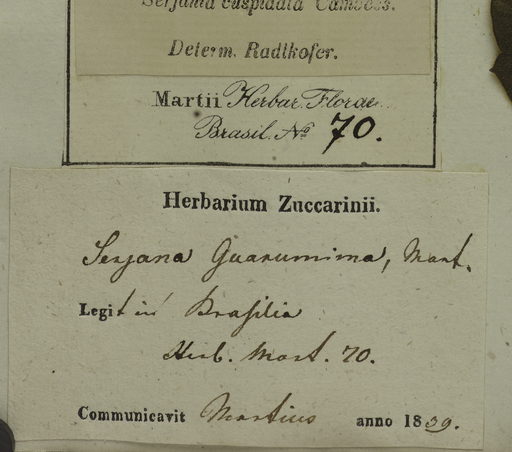 Serjania cuspidata Cambess.
Determ. Radlkofer.
Martii Herbar. Florae
Brasil. No 70.
Herbarium Zuccarinii.
Serjana Guarumima, Mart.
Legit in Brasilia
Herb. Mart. 70.
Communicavit Martius anno 1839.